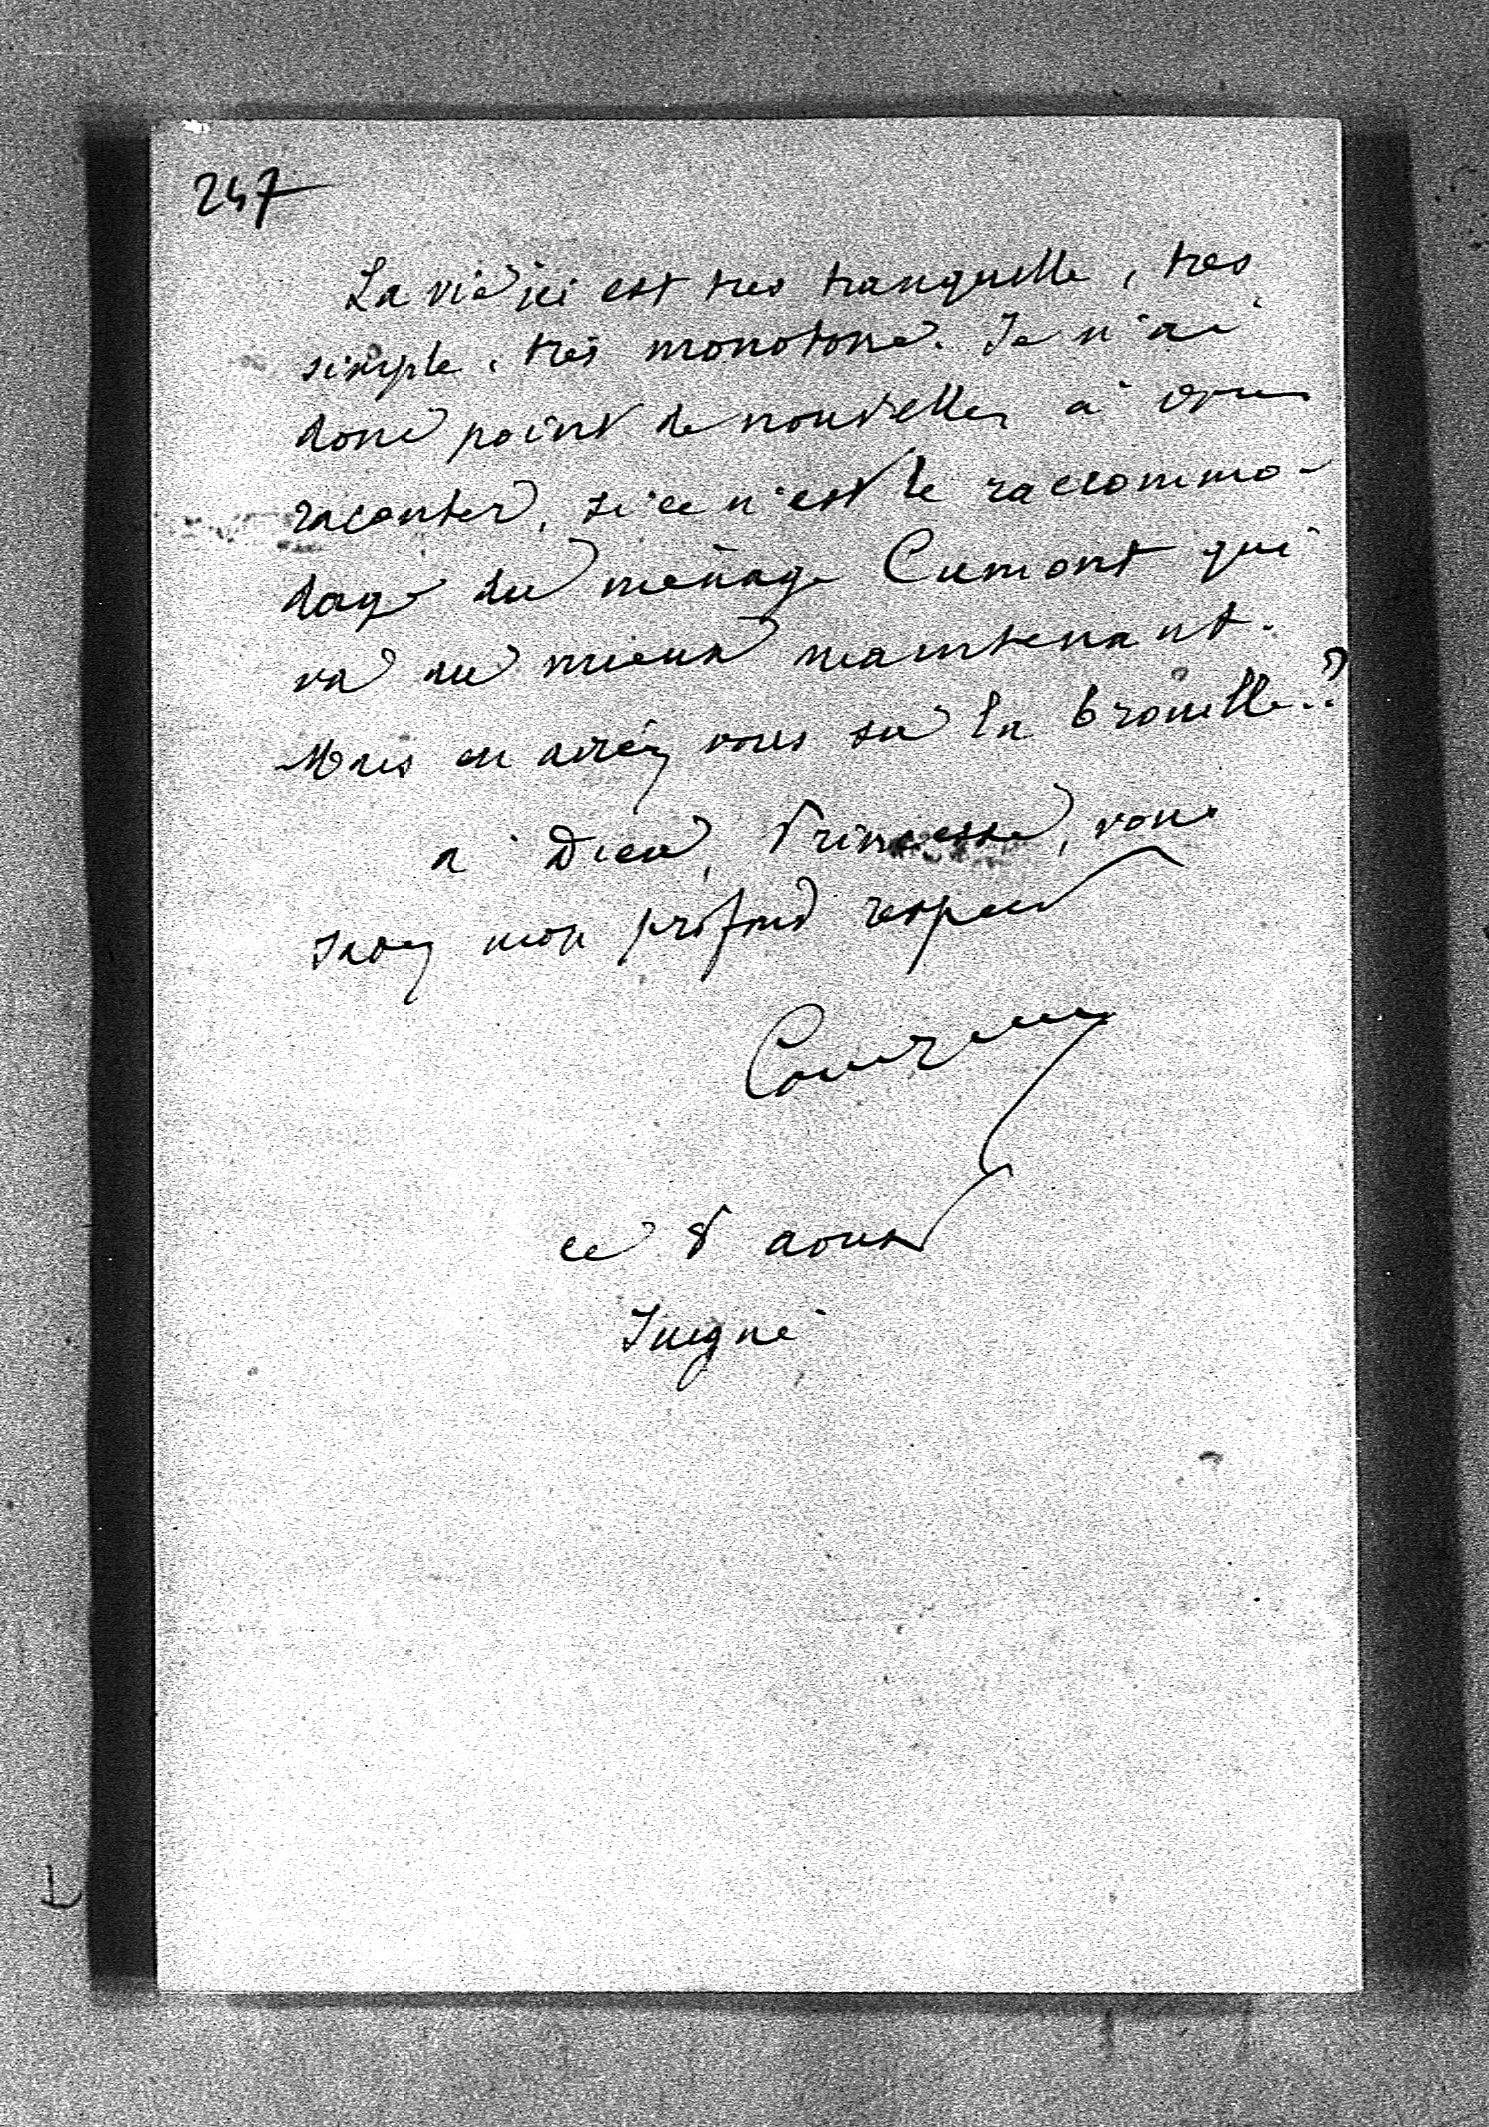 247
La vie ici est tres tranquille, tres
simple, très monotone. Je n'ai
donc point de nouvelles à vous
raconter, si ce n'est le raccommo-
dage du ménage Cumont qui
va au mieux maintenant.
Mais en aviéz vous su la brouille..?
a Dieu, Princesse, vous
savez mon profond respect
ce 8 aout
Juigné